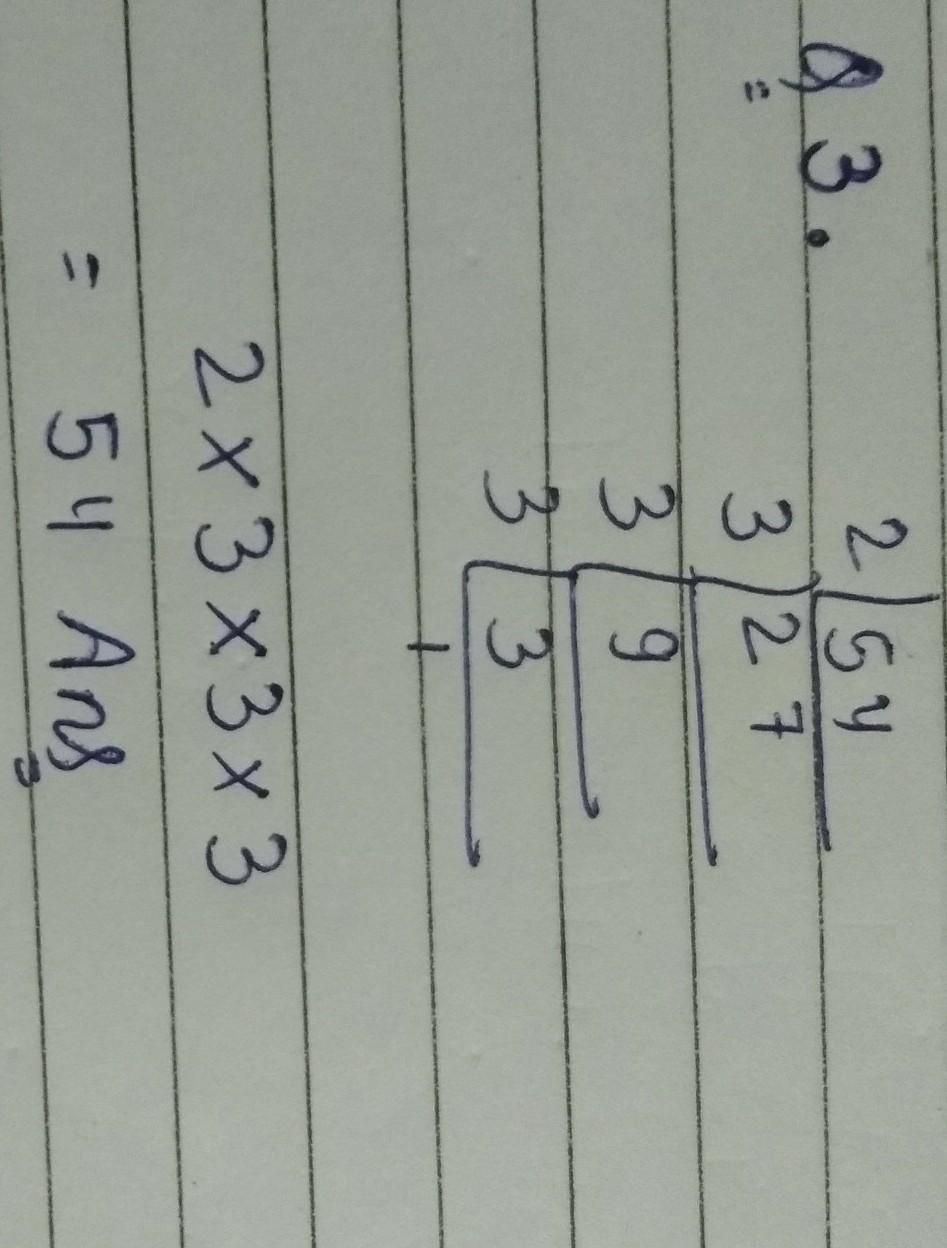 Q 3.
2 54
3 27
3 9
3 3
1
2 x 3 x 3 x 3
= 54 Ans